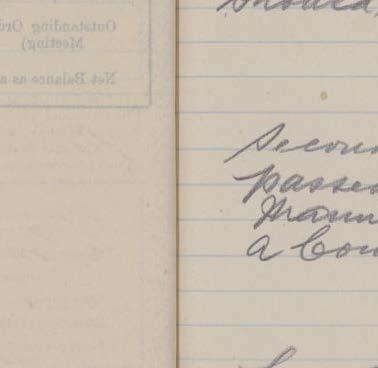 Outstanding Ord
Meeting)
Net Balance as a
should
Secon
passe
Mann
a Com